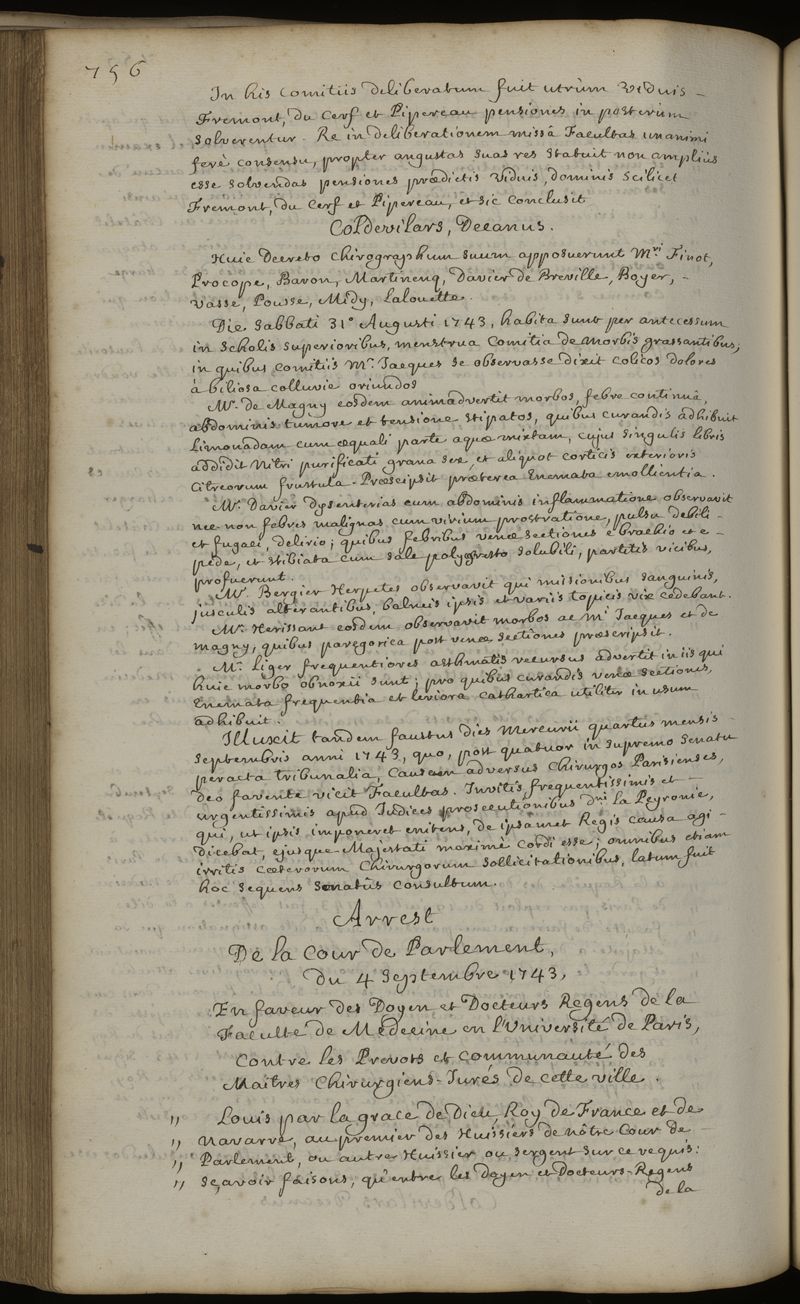 756
In his Comitiis deliberatum fuit utrùm viduis
Fremont, du Cerf et Pipereau pensiones in posterùm
solverentur. Re in deliberationem missâ Facultas unanimi
ferè consensu, propter angustas suas res statuit non ampliùs
esse solvendas pensiones prædictis viduis, dominis scilicet
Fremont, du Cerf et Pipereau, et sic conclusit
ColDevilars, Decanus.
Huic Decreto Chirographum suum apposuerunt Mri Finot,
Procope, Baron, Martinenq, Davier de Breville, Boyer, -
Vasse, Pousse, Midy, Lalouette.
Die Sabbati 31ª Augusti 1743, habita sunt per antecessum
in Scholis superioribus, menstrua Comitia de morbis grassantibus,
in quibus comitiis Mr. Jacques se observasse dixit colicos dolores
à biliosa colluvie oriundos
Mr. de Magny eosdem animadvertit morbos, febre continuâ,
abdominis tumore et tensione stipatos, quibus curandis adhibuit
Limonadam cum æquali parte aquæ mixtam, cujus singulis libris
addidit Nitri purificati grana sex, et aliquot corticis exterioris
Citreorum frustula. Præscripsit præterea Enemata emollientia.
Mr. Davier Dysenterias cum abdominis inflammatione observavit
nec non febres malignas cum virium prostratione, pulsu debili -
et fugaci, delirio; quibus febribus venæ sectiones e brachio et e -
pede, et stibiata cum sale polychresto solubili, partitis vicibus,
profuerunt.
Mr. Bergier Herpetes observavit qui missionibus sanguinis,
jusculis alterantibus, balneis ipsis et variis topicis vix cedebant.
Mr. Herissant eosdem observavit morbos ac Mi Jacques et de
magny, quibus paregorica post venæ sectiones præscripsit.
Mr. Liger frequentiores asthmatis recursus advertit in iis qui
huic morbo obnoxii sunt; pro quibus curandis venæ sectiones,
Enemata frequentia et leviora cathartica utiliter in usum
adhibuit.
Illuxit tandem faustus dies Mercurii quartus mensis
Septembris anni 1743, quo, post quatuor in supremo Senatu
peracta tribunalia, Causam adversus Chirurgos Parisienses,
deo favente vicit Facultas. Invitis frequentissimis et -
urgentissimis apud Judices prosecutionibus Dni la Peyronie,
qui, ut ipsis imponeret enitens, de ipsâmet Regis causa agi -
dicebat, ejusque Majestati maximè cordi esse; omnibus etiam
irritis cæterorum Chirurgorum sollicitationibus, latum fuit
hoc sequens Senatûs Consultum.
Arrest
De la Cour de Parlement,
du 4 Septembre 1743,
En faveur des Doyen et Docteurs Regens de la
Faculté de Médecine en l'Université de Paris,
Contre les Prevots et communauté des
Maîtres Chirurgiens-Jurés de cette ville.
" Louis par la grace de Dieu, Roy de France et de
" Navarre, au premier des Huissiers de nôtre Cour de
" Parlement, ou autre Huissier ou sergent sur ce requis:
" sçavoir faisons, qu'entre les Doyen et Docteurs-Regens
de la